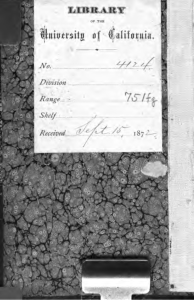 LIBRARY
OF THE
University of California.
No. 4124
Division
Range
Shelf
Received Sept 15, 187